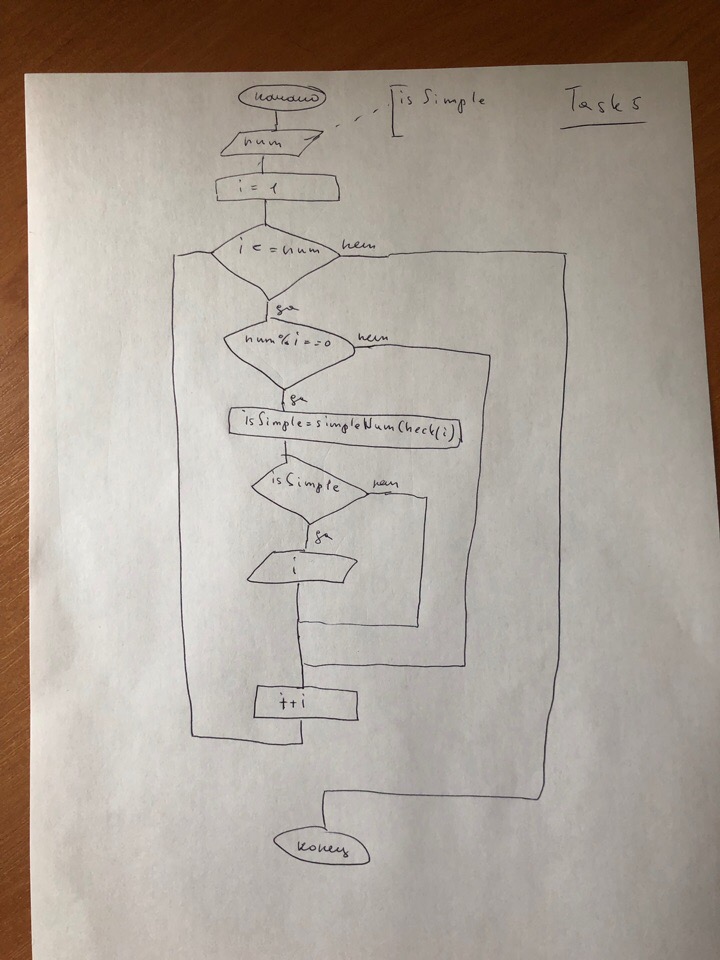 начало
isSimple
Task 5
num
i = 1
i <= num
нет
да
num % i == 0
нет
да
isSimple = simpleNumCheck(i)
isSimple
нет
да
i
++i
конец